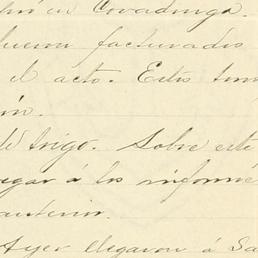 en Covadonga.
fueron facturados
el acto. Estos
de trigo. Sobre este
á los informé
anterior.
Ayer llegaron á Sa